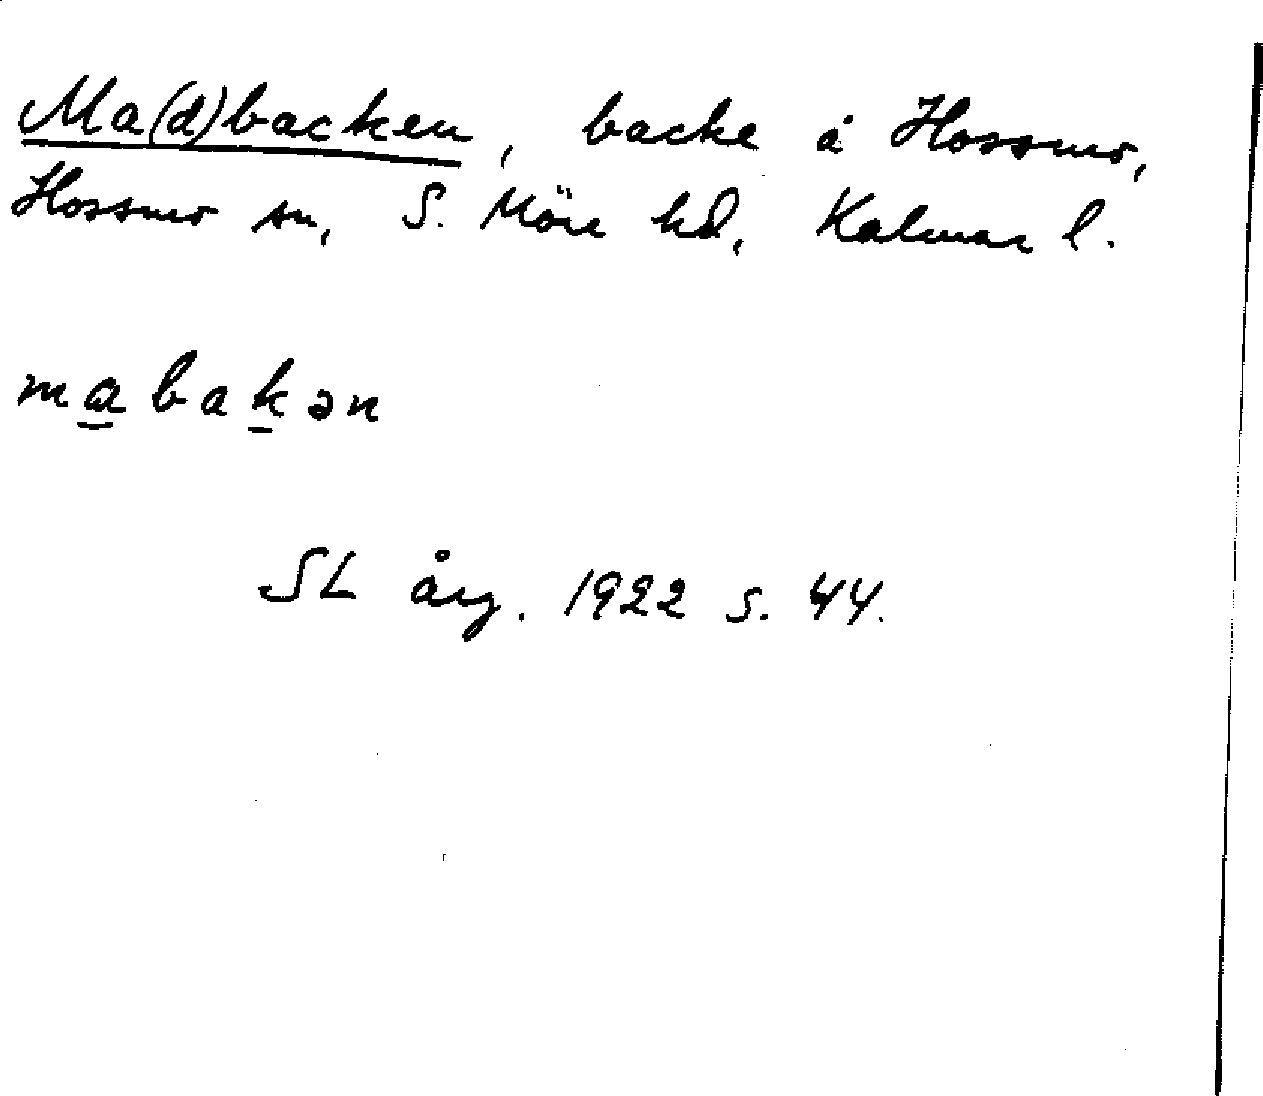 Ma(d)backen, backe å Hossmo,
Hossmo sn, S. Möre hd, Kalmar l.
mɑ̲bak̲ən
SL årg. 1922 s. 44.